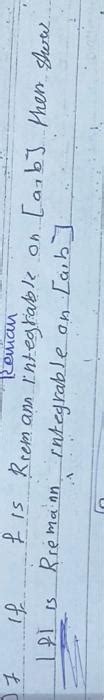 Roman
7 If f is Riemann integrable on [a,b] then show
|f| is Riemann integrable on [a,b]